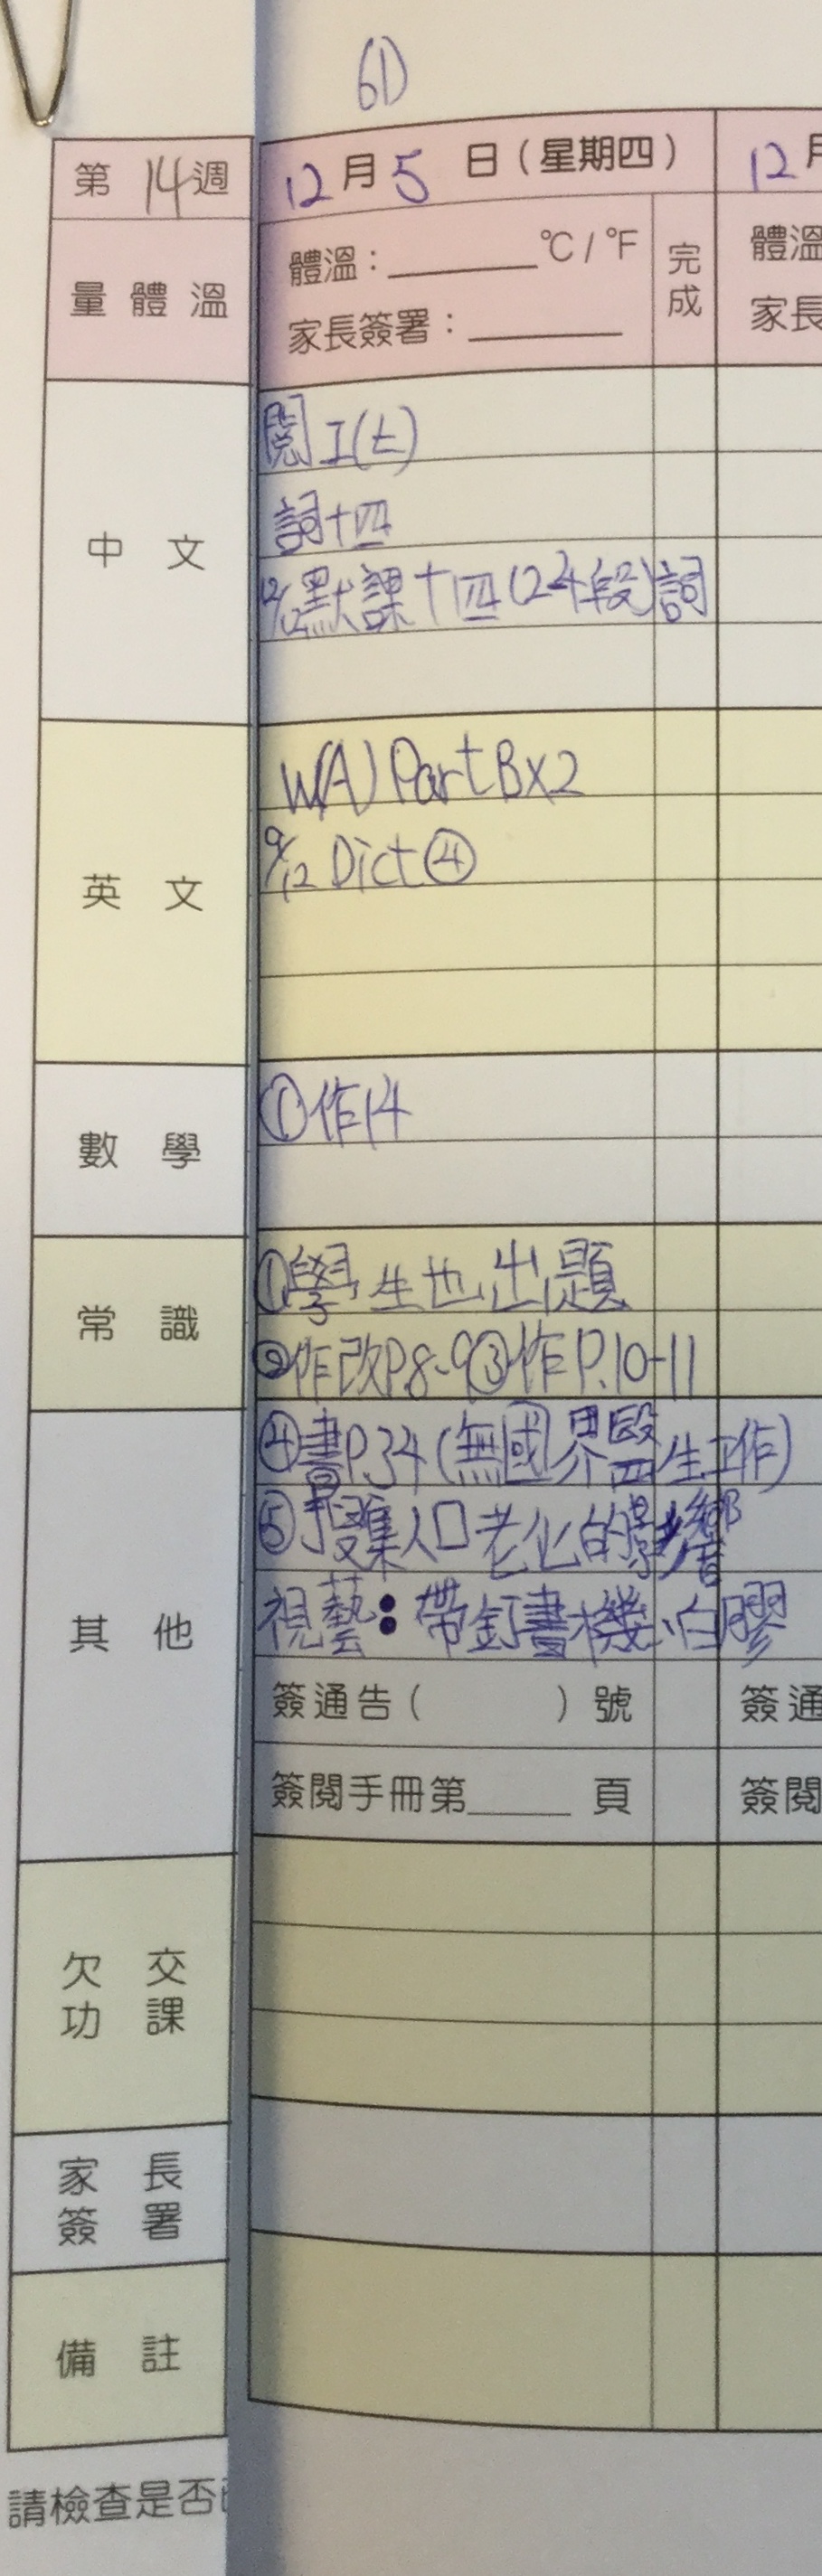 6D
第14週
12月5日(星期四)
12月
量體溫
體溫：______°C/°F
完成
體溫
家長簽署：______
家長
中文
閱工(七)
詞十四
12/12默課十四(2-4段)詞
英文
W(A) Part B x2
9/12 Dict④
數學
①作14
常識
①學生也出題
②作改P.8-9③作P.10-11
其他
④書P.34(無國界醫生工作)
⑤搜集人口老化的影響
視藝：帶釘書機、白膠
簽通告(　　　)號
簽通
簽閱手冊第____頁
簽閱
欠交
功課
家長
簽署
備註
請檢查是否